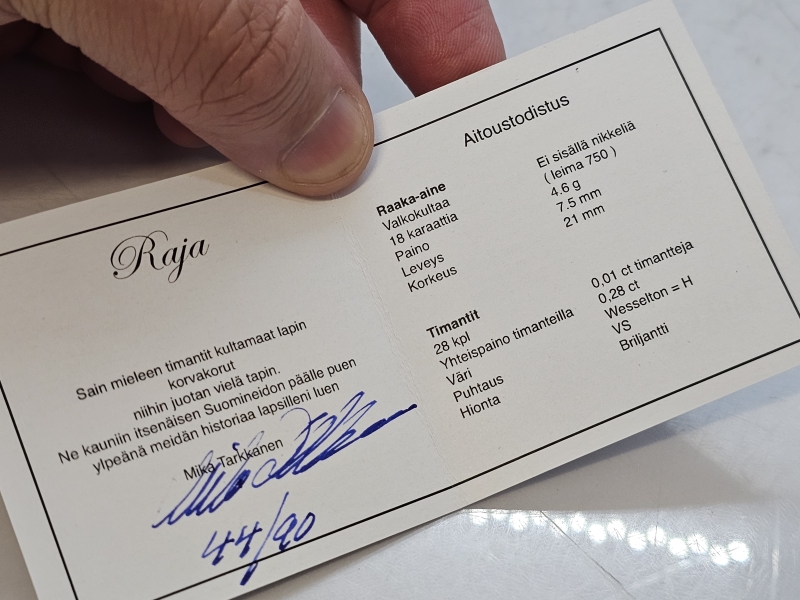 Raja
Sain mieleen timantit kultamaat lapin
korvakorut
niihin juotan vielä tapin.
Ne kauniin itsenäisen Suomineidon päälle puen
ylpeänä meidän historiaa lapsilleni luen
Mika Tarkkanen
44/90
Aitoustodistus
Raaka-aine
Valkokultaa Ei sisällä nikkeliä
18 karaattia ( leima 750 )
Paino 4.6 g
Leveys 7.5 mm
Korkeus 21 mm
Timantit
28 kpl 0,01 ct timantteja
Yhteispaino timanteilla 0,28 ct
Väri Wesselton = H
Puhtaus VS
Hionta Briljantti